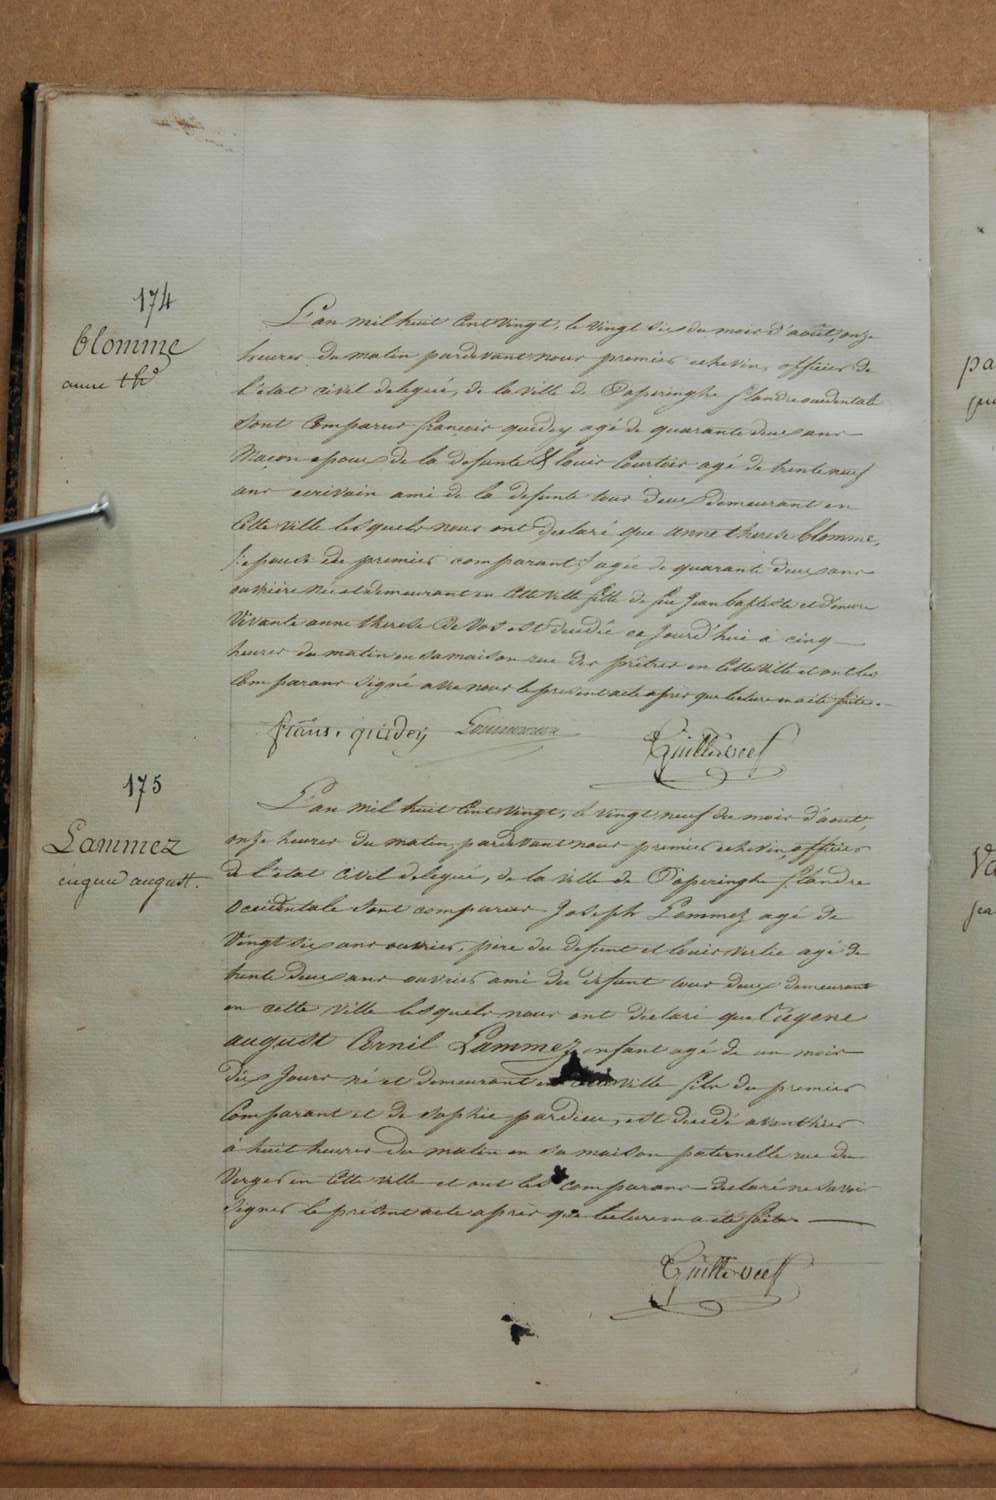 174
blomme
anne thr
L'an mil huit Cent Vingt, le Vingt six du mois d'août, onze
heures du matin pardevant nous premier echevin, officier de
l'état civil delegué, de la ville de Poperinghe flandre occidentale
Sont Comparus françois quidey agé de quarante deux ans
Maçon epoux de la defunte & louis Courtois agé de trente neuf
ans ecrivain ami de la defunte tous deux demeurant en
Cette ville lesquels nous ont declaré que anne therese blomme,
l'epouse de premier comparant, agée de quarante deux ans
ouvrière née et demeurant en Cette ville fille de feu Jean baptiste et d'encore
Vivante anne therese De Vos est decedée ce Jourd'hui à cinq
heures du matin en sa maison rue des prêtres en Cette ville et ont les
Comparans Signé avec nous le present acte apres que lecture en a été faite.
frans. quidey
175
Lammez
eugene august.
L'an mil huit Cent Vingt, le vingt neuf du mois d'aout,
onze heures du matin, pardevant nous premier echevin, officier
de l'état Civil delegué, de la ville de Poperinghe flandre
Occidentale Sont comparus Joseph Lammez agé de
Vingt six ans ouvrier, père du defunt et louis agé de
trente deux ans ouvrier ami du defunt tous deux demeurant
en cette ville lesquels nous ont declaré que Eugene
august Cornil Lammez enfant agé de un mois
Dix Jours né et demeurant en ville fils du premier
Comparant et de Sophie pardieu, est decedé avanthier
à huit heures du matin en sa maison paternelle rue du
Verger en Cette ville et ont les comparans declaré ne savoir
Signer le présent acte apres que lecture en a été faite.